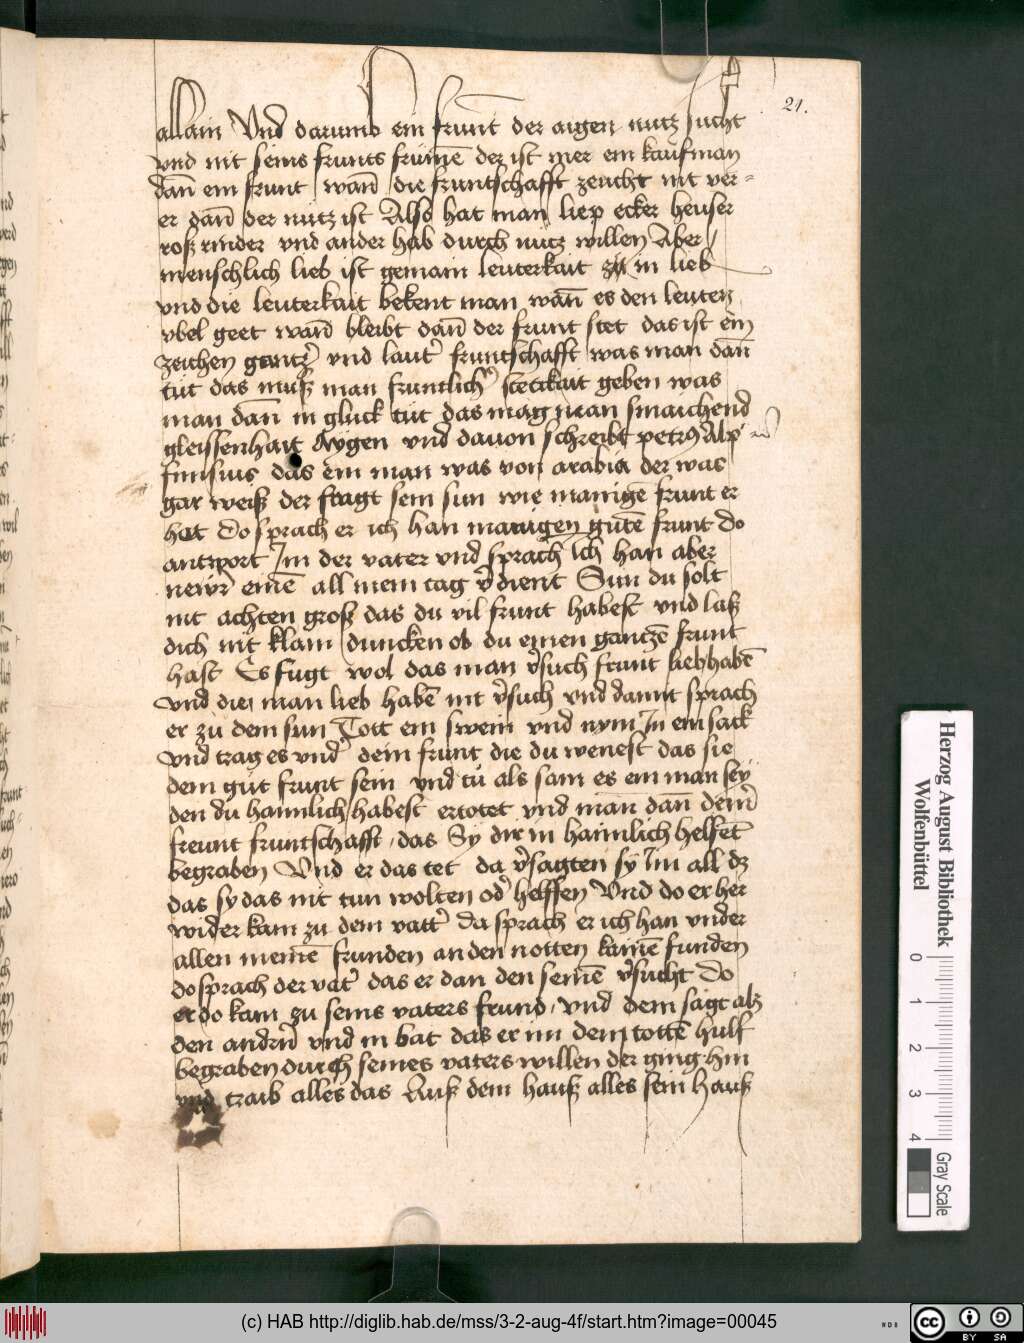 21.
allain Vnd darumb ein frunt der aigen nutz sucht
vnd nit seins frunts frumē der ist mer ein kaufman
dañ ein frunt / wañ / die fruntschafft zeucht nit ver=
er dañ der nutz ist Also hat man liep ecker heuser
roß rinder vnd ander hab durch nutz willen Aber /
menschlich lieb ist gemain leuterkait in lieb
vnd die leuterkait bekent man wañ es den leuten
vbel geet wañ bleibt dañ der frunt stet das ist ein
zeichen gantzer vnd lauter fruntschafft was man dañ
tut das muß man fruntlicher stetikait geben was
man dañ in gluck tut das mag man smaichend
gleissenhait aygen vnd dauon schreibt petrus Alp
funsius das ein man was von arabia der was
gar weiß der fragt sein sun wie manigē frunt er
het do sprach er ich han manigen gutē frunt do
antwort Im der vater vnd sprach Ich han aber
newr einē all mein tag v̉dient Sun du solt
nit achten groß das du vil frunt habest vnd laß
dich nit klain / duncken ob du einen gantzē frunt
hast Es fugt wol das man v̉such frunt liebhabē
vnd die man lieb habē nit v̉such vnd damit sprach
er zu dem sun Tott ein swein vnd nym In ein sack
vnd trag es vnd̉ dein frunt die du wenest das sie
dem gut frunt sein vnd tu als sam es ein man sey
den du haimlich / habest ertotet vnd man dañ dein̉
freunt fruntschafft / das Sy dir in haimlich helfent
begraben Vnd er das tet da v̉sagten sy Im all dz
das sy das nit tun wolten od̉ helffen Vnd do er her
wider kam zu dem vatt̉ da sprach er ich han vnder
allen meinē frunden an den notten kainē funden
do sprach der vat̉ das er dan den seinē v̉sucht Do
er do kam zu seins vaters frund / vnd dem sagt alz
den andrn̉ vnd in bat das er im den tottē hulf
begraben durch seines vaters willen der ging hin
vnd traib alles das Auß dem hauß alles sein hauß
Herzog August Bibliothek
Wolfenbüttel
0 1 2 3 4
Gray Scale
(c) HAB http://diglib.hab.de/mss/3-2-aug-4f/start.htm?image=00045
WDB
cc BY SA